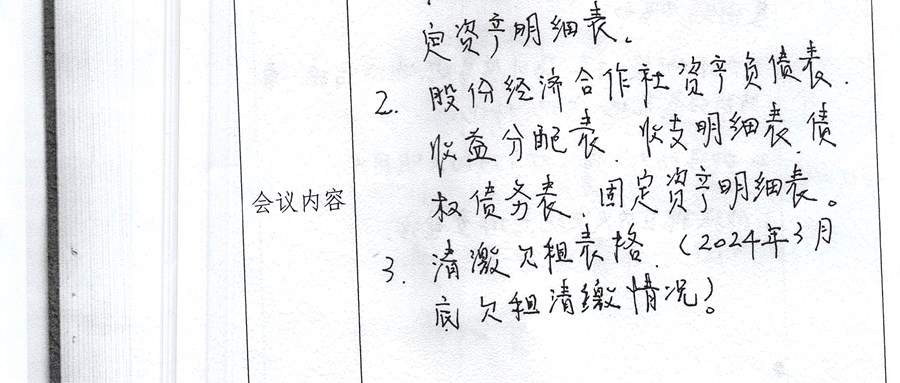 定资产明细表.
2. 股份经济合作社资产负债表.
收益分配表. 收支明细表. 债
权债务表. 固定资产明细表。
会议内容
3. 清缴欠租表格. (2024年3月
底欠租清缴情况)。